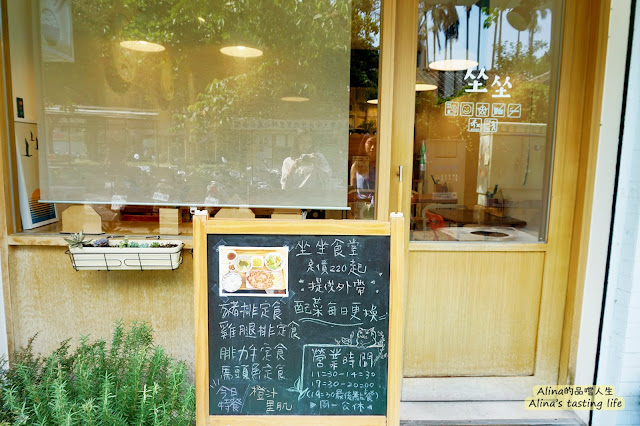 坐坐
坐坐食堂
定價220起
提供外帶
配菜每日更換
豬排定食
雞腿排定食
腓力牛定食
馬頭魚定食
今日特餐
橙汁
里肌
營業時間
11:30-14:30
17:30-20:00
(19:30最後點餐)
周一公休
Alina的品嚐人生
Alina's tasting life